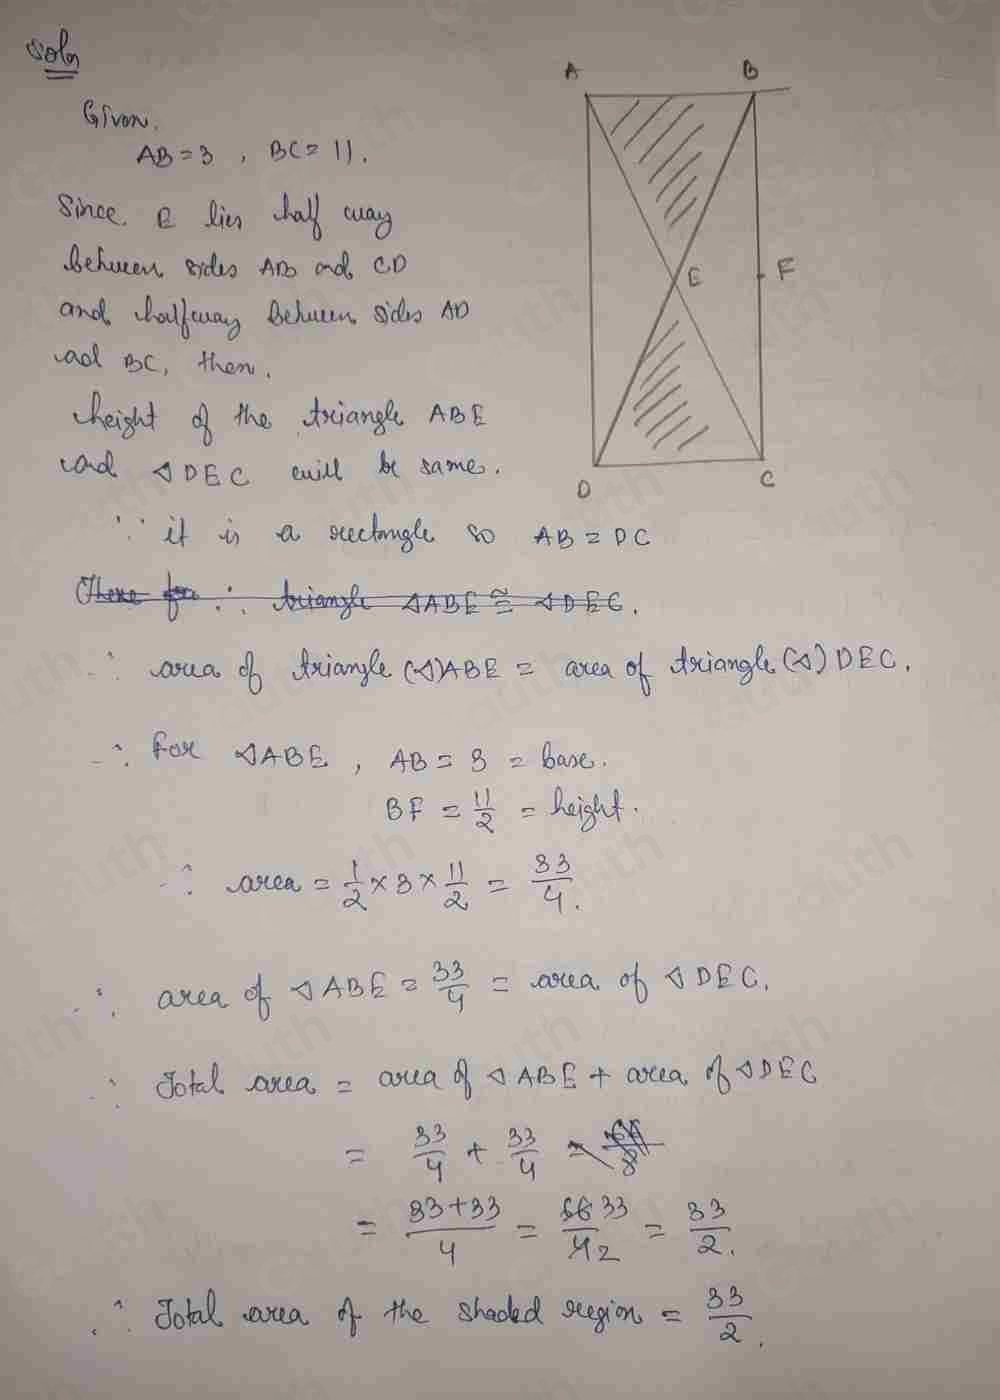 Soln
A B
Given.
AB = 3 , BC = 11.
Since E lies half way
between sides AB and CD
and halfway between sides AD
ad BC, then.
height of the triangle ABE
and △DEC will be same.
E F
D C
∵ it is a rectangle so AB = DC
There for ∴ triangle △ABE ≅ △DEC.
∴ area of triangle (△) ABE = area of triangle (△) DEC.
∴ For △ABE , AB = 3 = base.
BF = 11/2 = height.
∴ area = 1/2 × 3 × 11/2 = 33/4.
∴ area of △ABE = 33/4 = area of △DEC.
∴ Total area = area of △ABE + area of △DEC
= 33/4 + 33/4 =
= 33+33/4 = 66 33/4 2 = 33/2.
∴ Total area of the shaded region = 33/2.